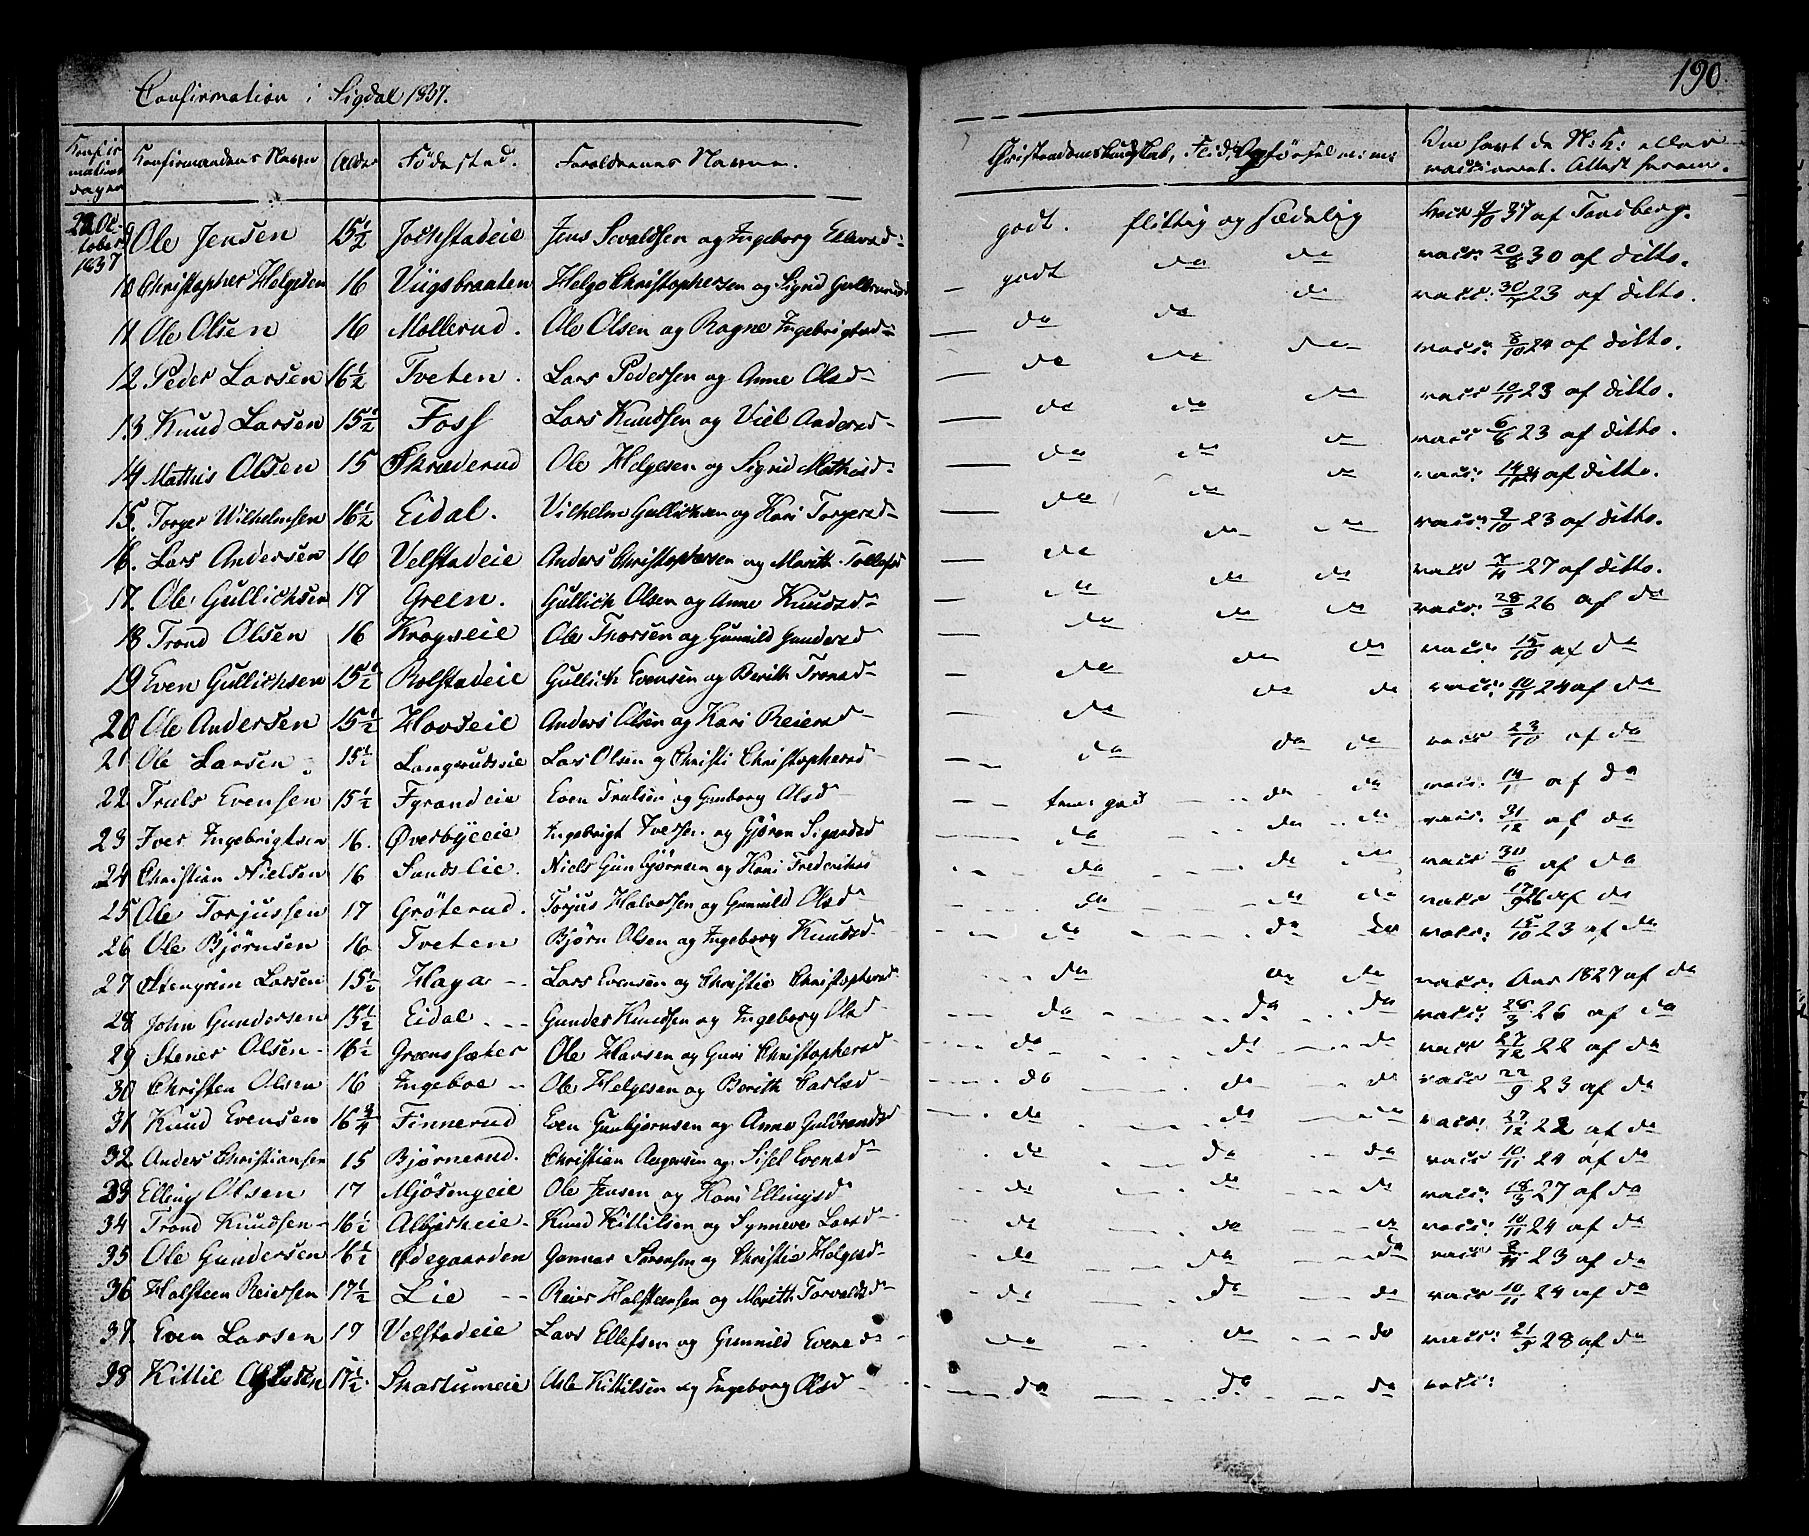 190
Confirmation i Sigdal 1837.
Confirmationsdagen | Konfirmandens Navn | Alder | Födested. | Foreldrenes Navne. | Christendomskundskab, Flid, Opförsel m: m: | Om havt de N: K: eller vaccineret. Attest herom.
22 October 1837
9 Ole Jensen | 15½ | Jochstadeie | Jens Sevaldsen og Ingeborg | godt. flittig og sædelig | 37 af Tandberg.
10 Christopher Helgesen | 16 | Viigsbraaten | Helge Christophersen og Sigrid Gulbrandsd | godt do do | vacc: 20/8 30 af ditto.
11 Ole Olsen | 16 | Möllerud. | Ole Olsen og Ragne Ingebrigtsd | do do do | vacc: 23 af ditto.
12 Peder Larsen | 16½ | Tveten. | Lars Pedersen og Anne Olsd | do do do | vacc: 8/10 24 af ditto.
13 Knud Larsen | 15½ | Foss | Lars Knudsen og Viel Andersd | do do do | vacc 10/11 23 af ditto.
14 Mathis Olsen | 15 | Skræderud | Ole Helgesen og Sigrid Mathisd | do do do | vacc 6/6 23 af ditto.
15. Torger Wilhelmsen | 16½ | Eidal. | Vilhelm Gullichsen og Kari Torgersd | do do do | vacc: 24 af ditto.
16. Lars Andersen | 16 | Velstadeie | Anders Christophersen og Marith Tollefsd | do do do | vacc: 9/10 23 af ditto.
17. Ole Gullichsen | 17 | Green. | Gullich Olsen og Anne Knudsd | do do do | vacc 7/4 27 af ditto.
18 Trond Olsen | 16 | Kragseie | Ole Thorsen og Gunnild Gundersd | do do do | vacc: 28/3 26 af do
19 Even Gullichsen | 15½ | Rolstadeie | Gullich Evensen og Berith Tronsd | do do do | vacc: 15/10 af do
20 Ole Andersen | 15½ | Hovseie | Anders Olsen og Kari Reiersd | do do do | vacc: 10/11 24 af do
21 Ole Larsen | 15½ | Langerudseie | Lars Olsen og Christi Christophersd | do do do | vacc 23/10 af do
22 Truls Evensen | 15½ | Fyrandeie | Even Trulsen og Gunborg Olsd | god do do | vacc: af do
23 Iver Ingebrigtsen | 16. | Överbyeeie | Ingebrigt Iversen og Gjören Sigurdsd | do do do | vacc: 31/12 af do
24 Christian Nielsen | 16 | Sandslie. | Niels Gunbjörnsen og Kari Frederiksd | do do do | vacc 30/6 af do
25 Ole Torjussen | 17 | Gröterud. | Torjus Halvorsen og Gunnild Olsd | do do do | vacc 26 af do
26 Ole Björnsen | 16 | Tveten | Björn Olsen og Ingeborg Knudsd | do do do | vacc: 15/10 23 af do
27 Stengrim Larsen | 15½ | Haga | Lars Evensen og Christie Christophersd | do do do | vacc: Aar 1827 af do
28 John Gundersen | 15½ | Eidal | Gunder Knudsen og Ingeborg Olsd | do do do | vacc: 28/3 26 af do
29 Stener Olsen | 16½ | Grønssæter | Ole Hansen og Guri Christophersd | do do do | vacc 27/12 22 af do
30 Christen Olsen | 16 | Ingeboe | Ole Helgesen og Berith Carlsd | do do do | vacc 22/9 23 af do
31 Knud Evensen | 16¾ | Finnerud | Even Gunbjörnsen og Anne Guldbrandsd | do do do | vacc: 27/12 22 af do
32 Anders Christiansen | 15 | Björnerud. | Christian Aagensen og Sisel Evensd | do do do | vacc 10/11 24 af do
33 Elling Olsen | 17 | Mjösengeie | Ole Jensen og Kari Ellingsd | do do do | vacc: 18/3 27 af do
34 Trond Knudsen | 16½ | Albjerheie | Knud Kittilsen og Synneve Larsd | do do do | vacc: 10/11 24 af do
35 Ole Gundersen | 16½ | Ödegaarden | Gunnar Sörensen og Christie Helgesd | do do do | vacc 8/11 23 af do
36 Halsteen Reiersen | 17½ | Lie | Reier Halsteensen og Marith Torvaldsd | do do do | vacc 10/11 24 af do
37. Even Larsen | 17 | Velstadeie | Lars Ellefsen og Gunnild Evensd | do do do | vacc: 21/5 28 af do
38 Kittil Aslesen | 17½ | Skartumeie | Asle Kittilsen og Ingeborg Olsd | do do do | vacc: